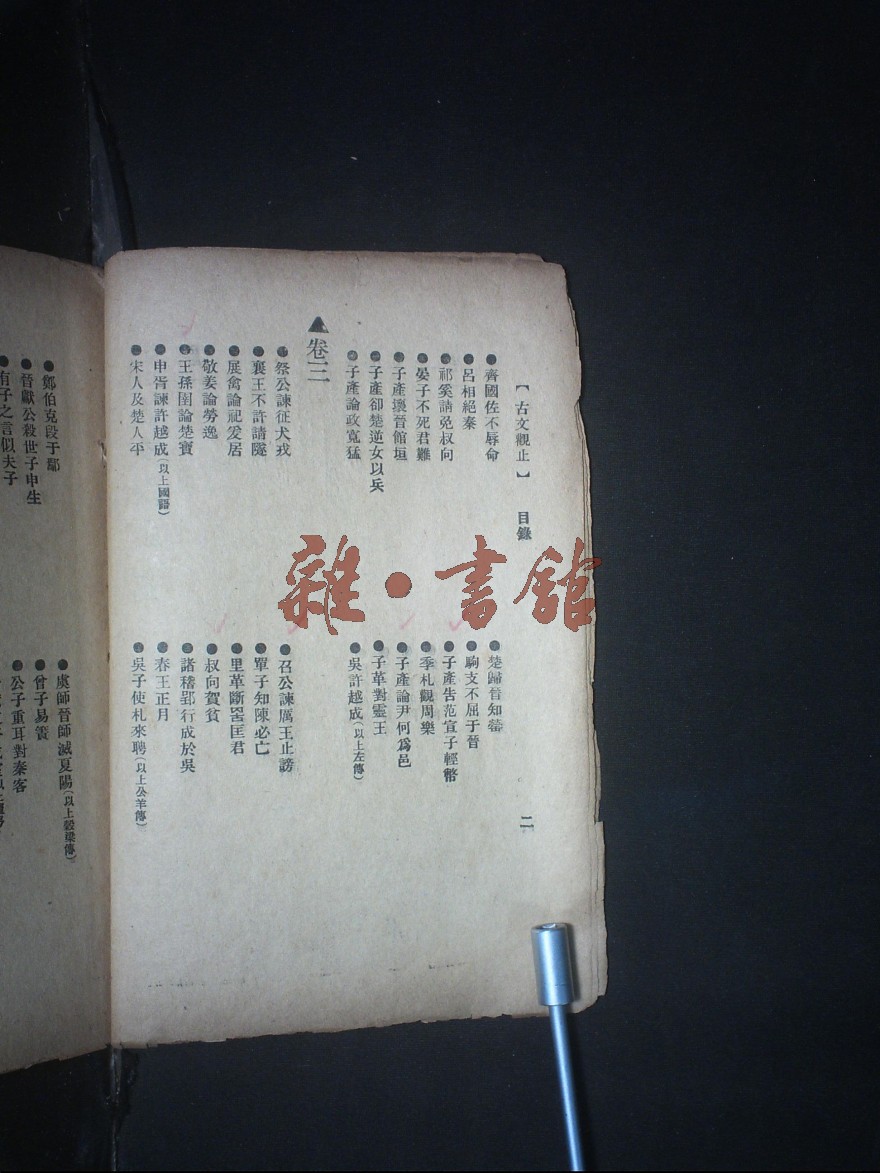 【古文觀止】 目錄 二
齊國佐不辱命
楚歸晉知罃
呂相絕秦
駒支不屈于晉
祁奚請免叔向
子產告范宣子輕幣
晏子不死君難
季札觀周樂
子產壞晉館垣
子產論尹何爲邑
子產卻楚逆女以兵
子革對靈王
子產論政寬猛
吳許越成(以上左傳)
▲卷三
祭公諫征犬戎
召公諫厲王止謗
襄王不許請隧
單子知陳必亡
展禽論祀爰居
里革斷罟匡君
敬姜論勞逸
叔向賀貧
王孫圉論楚寶
諸稽郢行成於吳
申胥諫許越成(以上國語)
春王正月
宋人及楚人平
吳子使札來聘(以上公羊傳)
鄭伯克段于鄢
虞師晉師滅夏陽(以上穀梁傳)
晉獻公殺世子申生
曾子易簀
有子之言似夫子
公子重耳對秦客
雜·書館